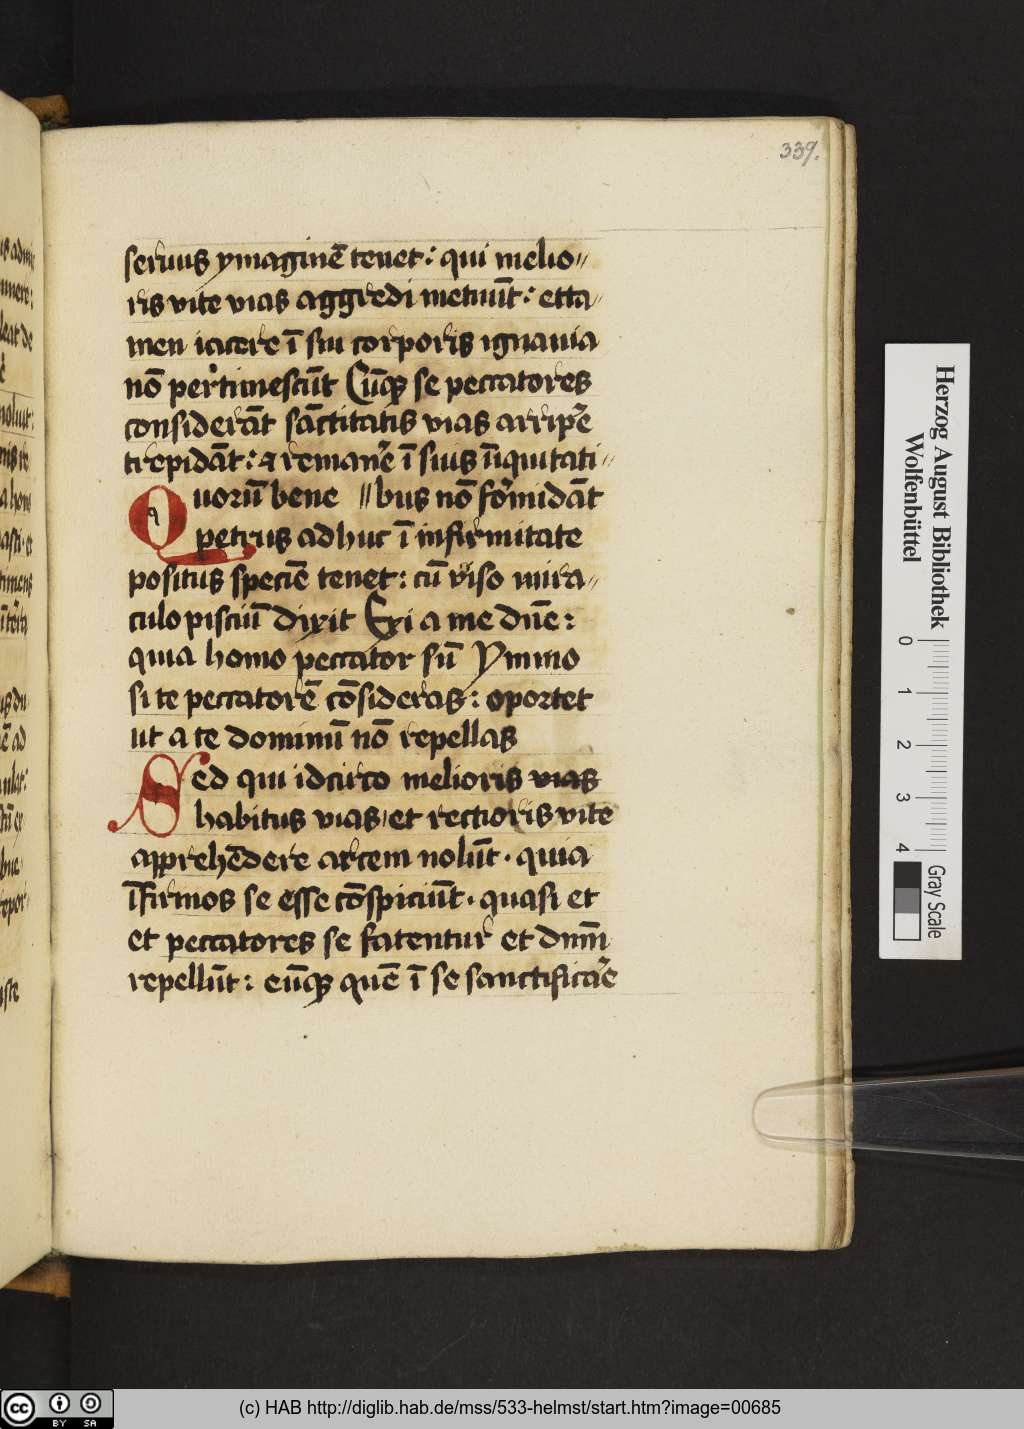 339.
seruus ymaginē tenet: qui melio〃
ris vite vias aggredi metuūt: et ta〃
men iacere ī sui corporis ignauia
nō pertimescūt Cūq se peccatores
considerāt sāctitatis vias arripe
trepidāt: et remane ī suis īiquitati〃
Quorū bene 〃bus nō formidāt
petrus adhuc ī infirmitate
positus speciē tenet: cū viso mira〃
culo pisciū dixit Exi a me dūe:
quia homo peccator sū Ymmo
si te peccatorē cōsideras: oportet
ut a te dominū nō repellas
Sed qui idcirco melioris vias
habitus vias et rectioris vite
apprehēdere arcem nolūt. quia
īfirmos se esse cōspiciūt. quasi et
et peccatores se fatentur et dnm̄
repellūt: eūq quē ī se sanctificare
Herzog August Bibliothek
Wolfenbüttel
0 1 2 3 4
Gray Scale
cc BY SA
(c) HAB http://diglib.hab.de/mss/533-helmst/start.htm?image=00685